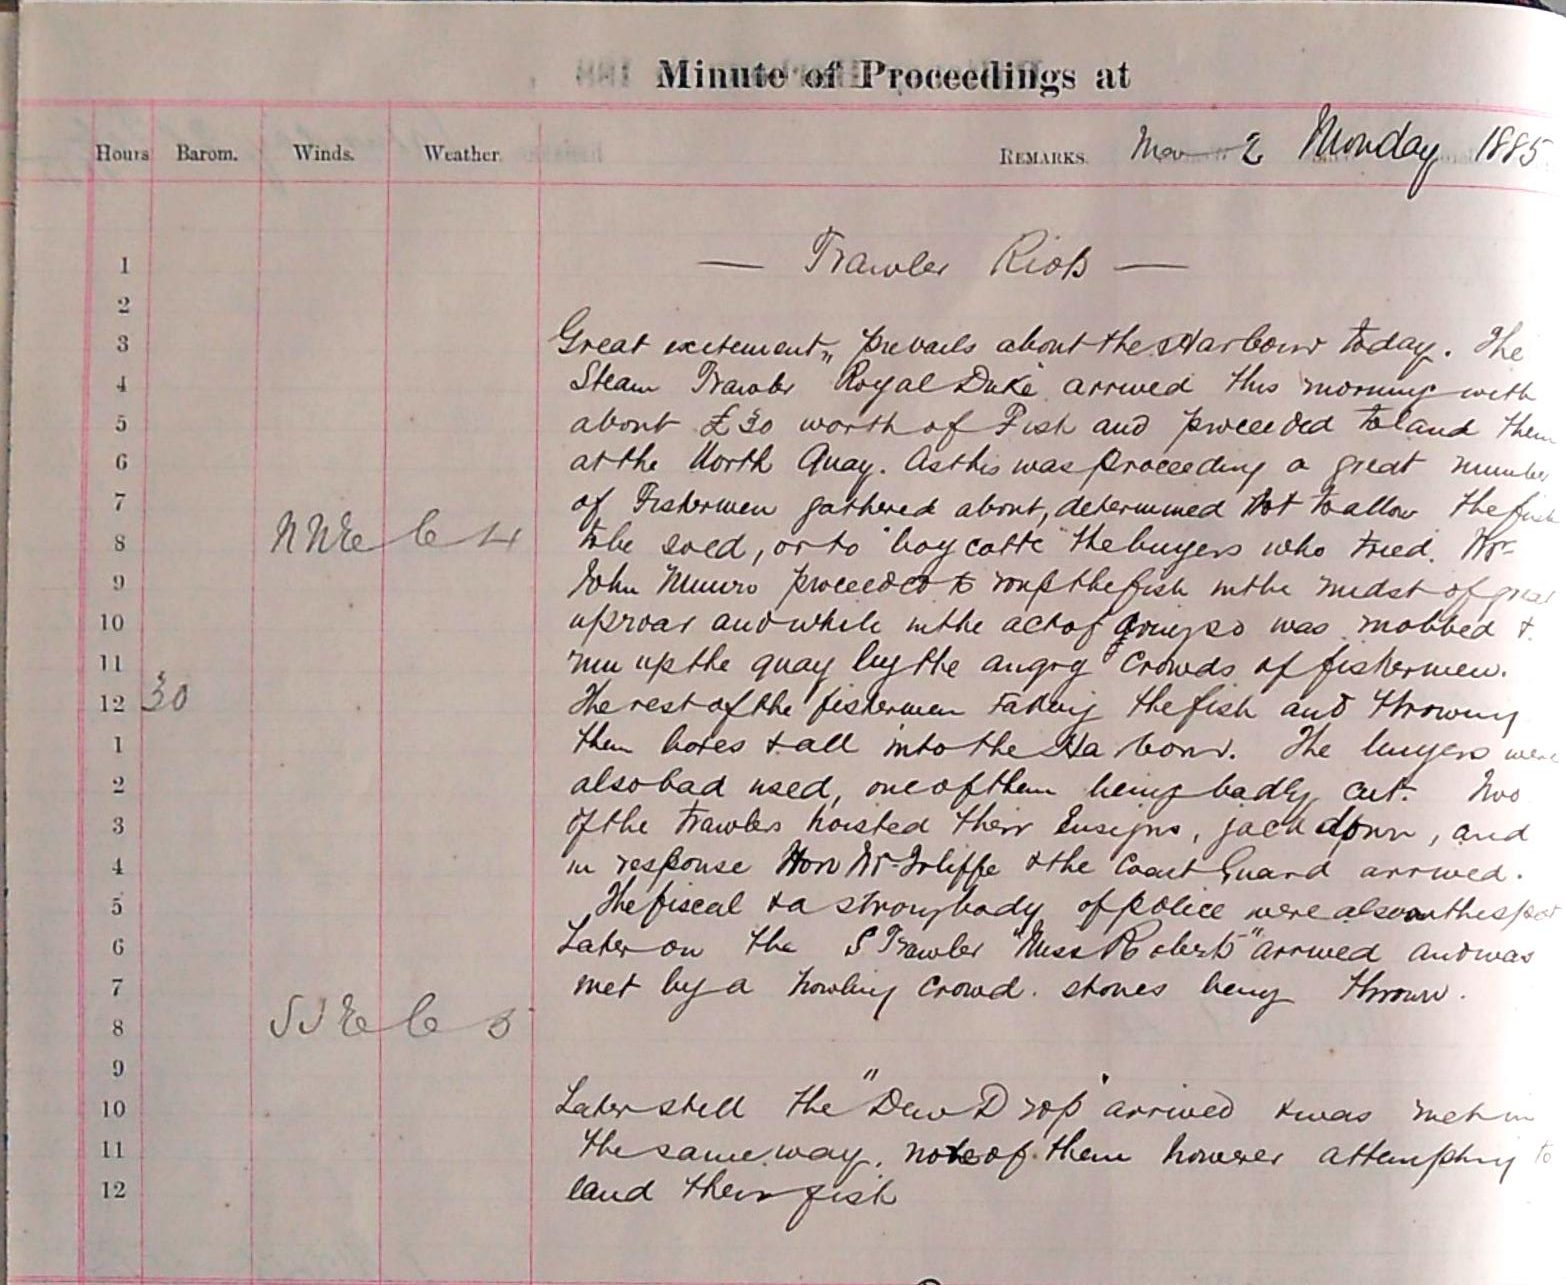 Minute of Proceedings at
Hours Barom. Winds. Weather. REMARKS. Mar 2 Monday 1885
— Trawler Riots —
1
2
3 Great excitement prevails about the Harbour today. The
4 Steam Trawler "Royal Duke" arrived this morning with
5 about £30 worth of Fish and proceeded to land them
6 at the North Quay. As this was proceeding a great number
7 of Fishermen gathered about, determined not to allow the fish
8 NNE bc 4 to be sold, or to "boycotte" the buyers who tried. Mr
9 John Munro proceeded to roup the fish in the midst of great
10 uproar and while in the act of doing so was mobbed &
11 run up the quay by the angry crowds of fishermen.
12 30 The rest of the fishermen taking the fish and throwing
1 them boxes & all into the Harbour. The buyers were
2 also bad used, one of them being badly cut. Two
3 of the trawlers hoisted their Ensigns, jack down, and
4 in response Hon Mr & the Coast Guard arrived.
5 The fiscal & a strong body of police were also on the spot
6 Later on the S Trawler "Miss Roberts" arrived and was
7 met by a howling crowd. stones being thrown.
8 SSE bc 3
9
10 Later still the "Dew Drop" arrived & was met in
11 the same way. none of them however attempting to
12 land their fish